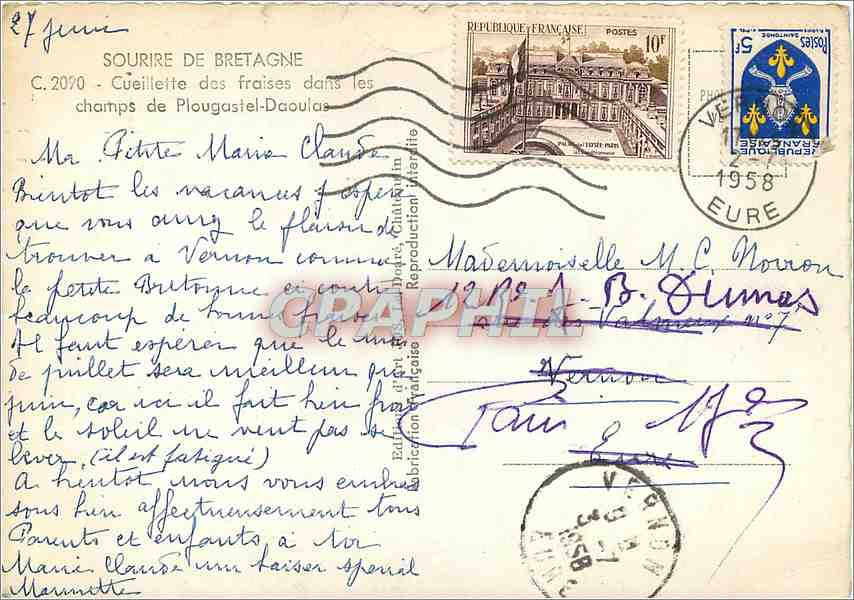 27 juin
SOURIRE DE BRETAGNE
C. 2090 - Cueillette des fraises dans les
champs de Plougastel-Daoulas
Ma Petite Marie Claude
Bientot les vacances j'espere
que vous aurez le plaisir de
trouver à Vernon comme
la petite Bretonne ci contre
beaucoup de bonnes fraises
Il faut espérer que le mois
de juillet sera meilleur que
juin, car ici il fait bien froid
et le soleil ne veut pas se
lever, (il est fatigué)
A bientot nous vous embras
sons bien affectueusement tous
Parents et enfants à toi
Marie Claude un baiser special
Mannette
Editions d'Art Jos Le Doaré, Châteaulin
Fabrication Française Reproduction interdite
REPUBLIQUE FRANÇAISE POSTES
10F
PALAIS de l'ELYSÉE-PARIS
5F
Postes
SAINTONGE
REPUBLIQUE
FRANÇAISE
VERNON
1958
EURE
Mademoiselle M. C. Noiron
12 Rue J. B. Dumas
Valmeux n° 7
Vernon
Paris 17e
Eure
VERNON
3-7
1958
EURE
CPAPHIL